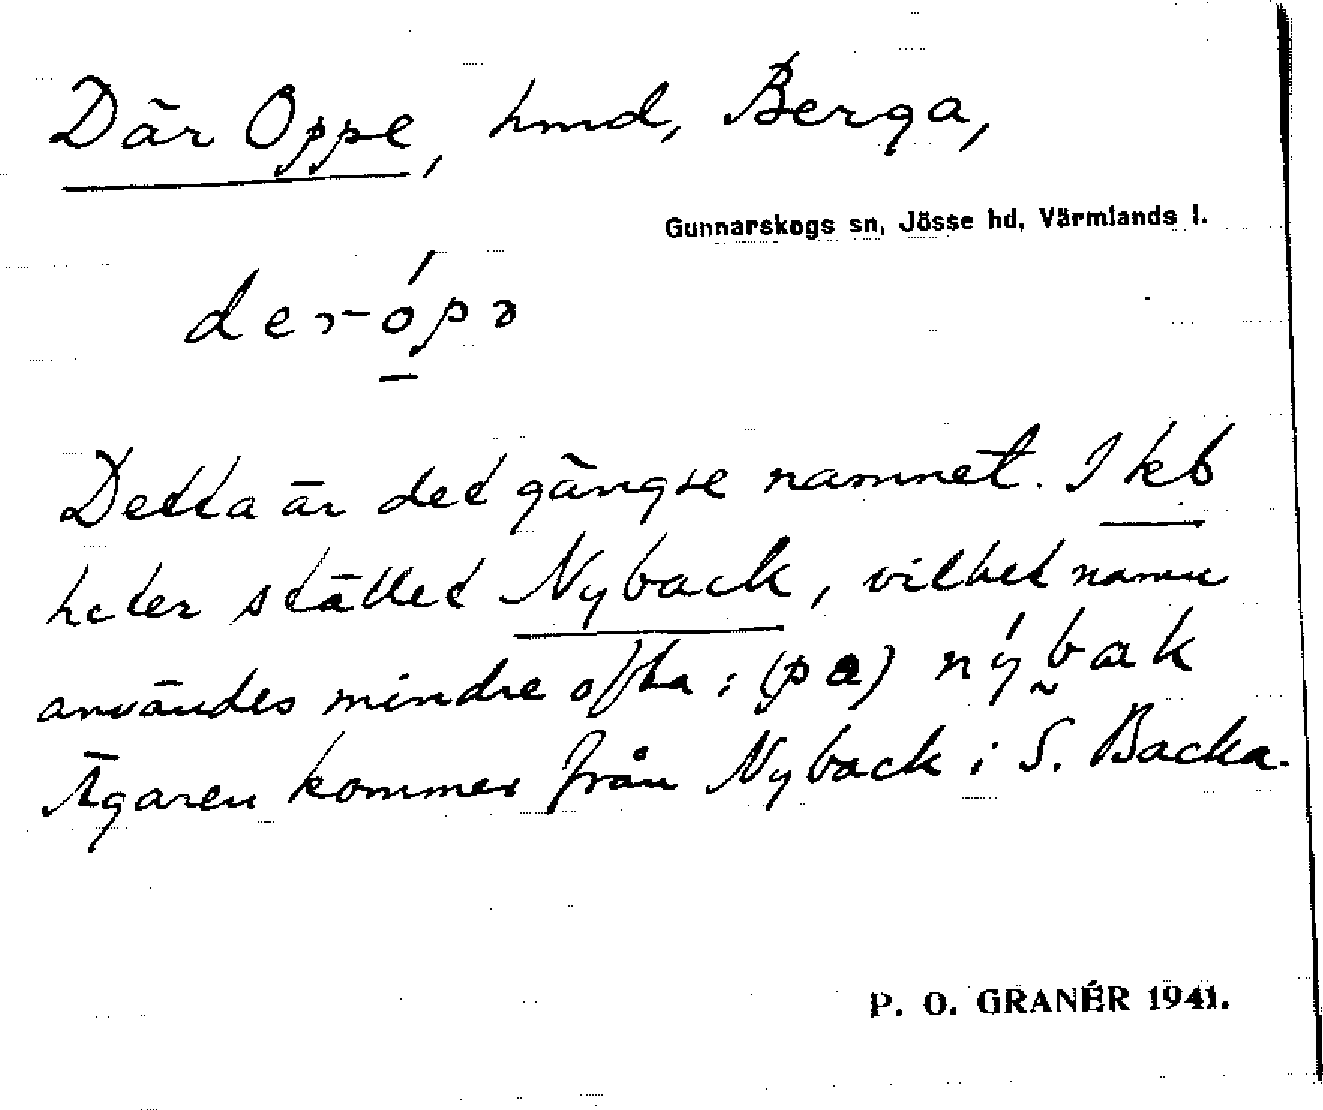 Där Oppe, hmd, Berga,
Gunnarskogs sn, Jösse hd, Värmlands l.
der-ópə
Detta är det gängse namnet. I kb
heter stället Nyback, vilket namn
användes mindre ofta: (pa) nýbak
Ägaren kommer från Nyback i S. Backa.
P. O. GRANÉR 1941.